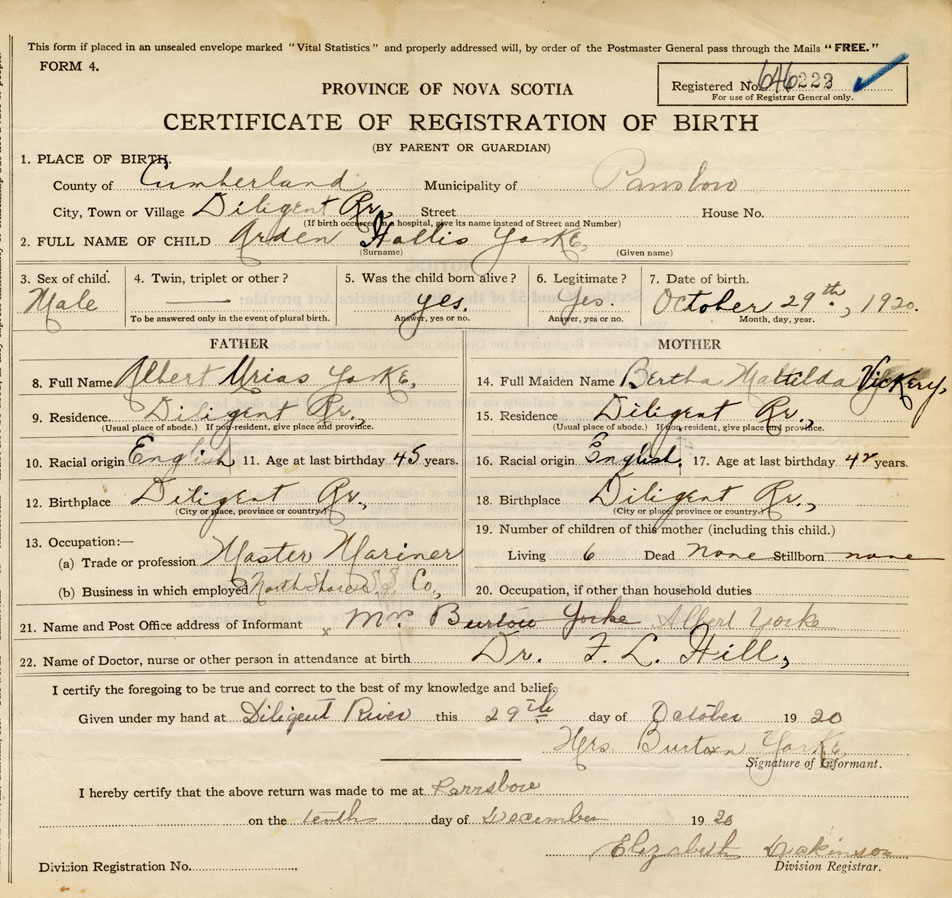 This form if placed in an unsealed envelope marked "Vital Statistics" and properly addressed will, by order of the Postmaster General pass through the Mails "FREE."
FORM 4.
Registered No. 646223
For use of Registrar General only.
PROVINCE OF NOVA SCOTIA
CERTIFICATE OF REGISTRATION OF BIRTH
(BY PARENT OR GUARDIAN)
1. PLACE OF BIRTH.
County of Cumberland Municipality of Parrsboro
City, Town or Village Diligent Rr, Street House No.
(If birth occurred in a hospital, give its name instead of Street and Number)
2. FULL NAME OF CHILD Arden Hollis Yorke,
(Surname) (Given name)
3. Sex of child. 4. Twin, triplet or other? 5. Was the child born alive? 6. Legitimate? 7. Date of birth.
Male — yes. Yes. October 29th, 1920.
To be answered only in the event of plural birth. Answer, yes or no. Answer, yes or no. Month, day, year.
FATHER MOTHER
8. Full Name Albert Urias Yorke, 14. Full Maiden Name Bertha Matilda Vickery,
9. Residence. Diligent Rr., 15. Residence Diligent Rr.,
(Usual place of abode.) If non-resident, give place and province. (Usual place of abode.) If non-resident, give place and province.
10. Racial origin English 11. Age at last birthday 45 years. 16. Racial origin English. 17. Age at last birthday 42 years.
12. Birthplace Diligent Rr., 18. Birthplace Diligent Rr.,
(City or place, province or country.) (City or place, province or country.)
13. Occupation:— 19. Number of children of this mother (including this child.)
(a) Trade or profession Master Mariner Living 6 Dead none Stillborn none
(b) Business in which employed North Shore S.S. Co., 20. Occupation, if other than household duties
21. Name and Post Office address of Informant x Mrs Burton Yorke Albert Yorke
22. Name of Doctor, nurse or other person in attendance at birth Dr. F. L. Hill,
I certify the foregoing to be true and correct to the best of my knowledge and belief.
Given under my hand at Diligent River this 29th day of October 1920
Mrs. Burton Yorke,
Signature of Informant.
I hereby certify that the above return was made to me at Parrsboro
on the tenth day of December 1920
Elizabeth Dickinson
Division Registration No. Division Registrar.